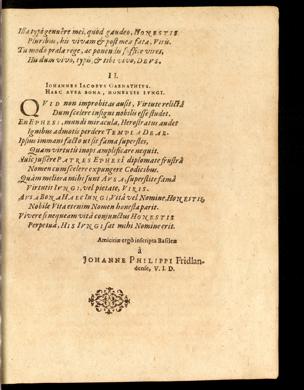 Illa typo genuêre mei, quod gaudeo, HONESTIS
Pluribus, his vivam & post mea fata, Viris.
Tu modo præla rege, ac ponendis suffice vires,
Hu dum vivo, typis, & tibi vivo, DEUS.
II.
IOHANNES IACOBUS GABNATHIUS.
HAEC AUSA BONA, HONESTIS IUNGI.
QUID non improbitas ausit, Virtute relictâ
Dum scelere insignis nobilis esse studet.
En EPHESI, mundi miracula, Herostratus audet
Ignibus admotis perdere TEMPLA DEAE.
Ipsius immani facto ut sit fama superstes,
Quam virtutis inops amplificare nequit.
Aut jussêre PATRES EPHESI diplomate frustrà
Nomen cum scelere expungere Codicibus.
Quàm meliora mihi sunt AUSA, superstite famâ
Virtutis IUNGI, vel pietate, VIRIS.
AUSA BONA HAEC IUNGI, Vitâ vel Nomine, HONESTIS,
Nobile Vita etenim Nomen honesta parit.
Vivere si nequeam vitâ conjunctus HONESTIS
Perpetuâ, HIS IUNGI sat mihi Nomine erit.
Amicitiæ ergò inscripta Basileæ
à
JOHANNE PHILIPPI Fridlan-
dense, V. I. D.